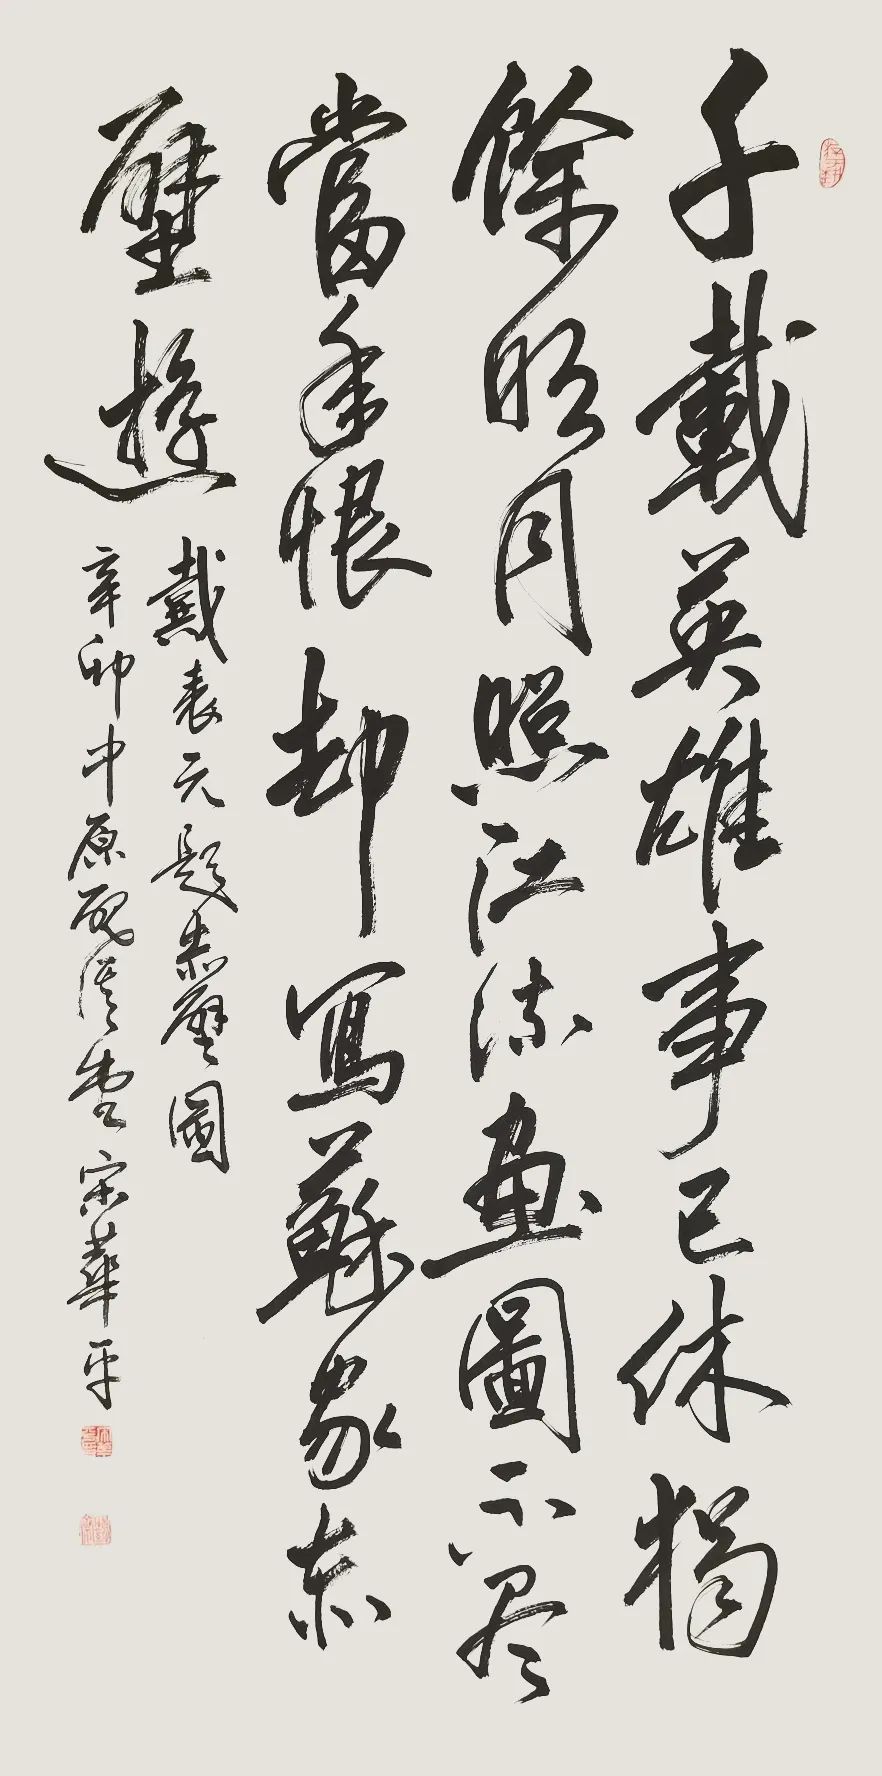 千載英雄事已休獨
餘明月照江流畫圖不盡
當年恨却寫蘇家赤
壁遊
戴表元題赤壁圖
辛卯中原醜漢書宋華平